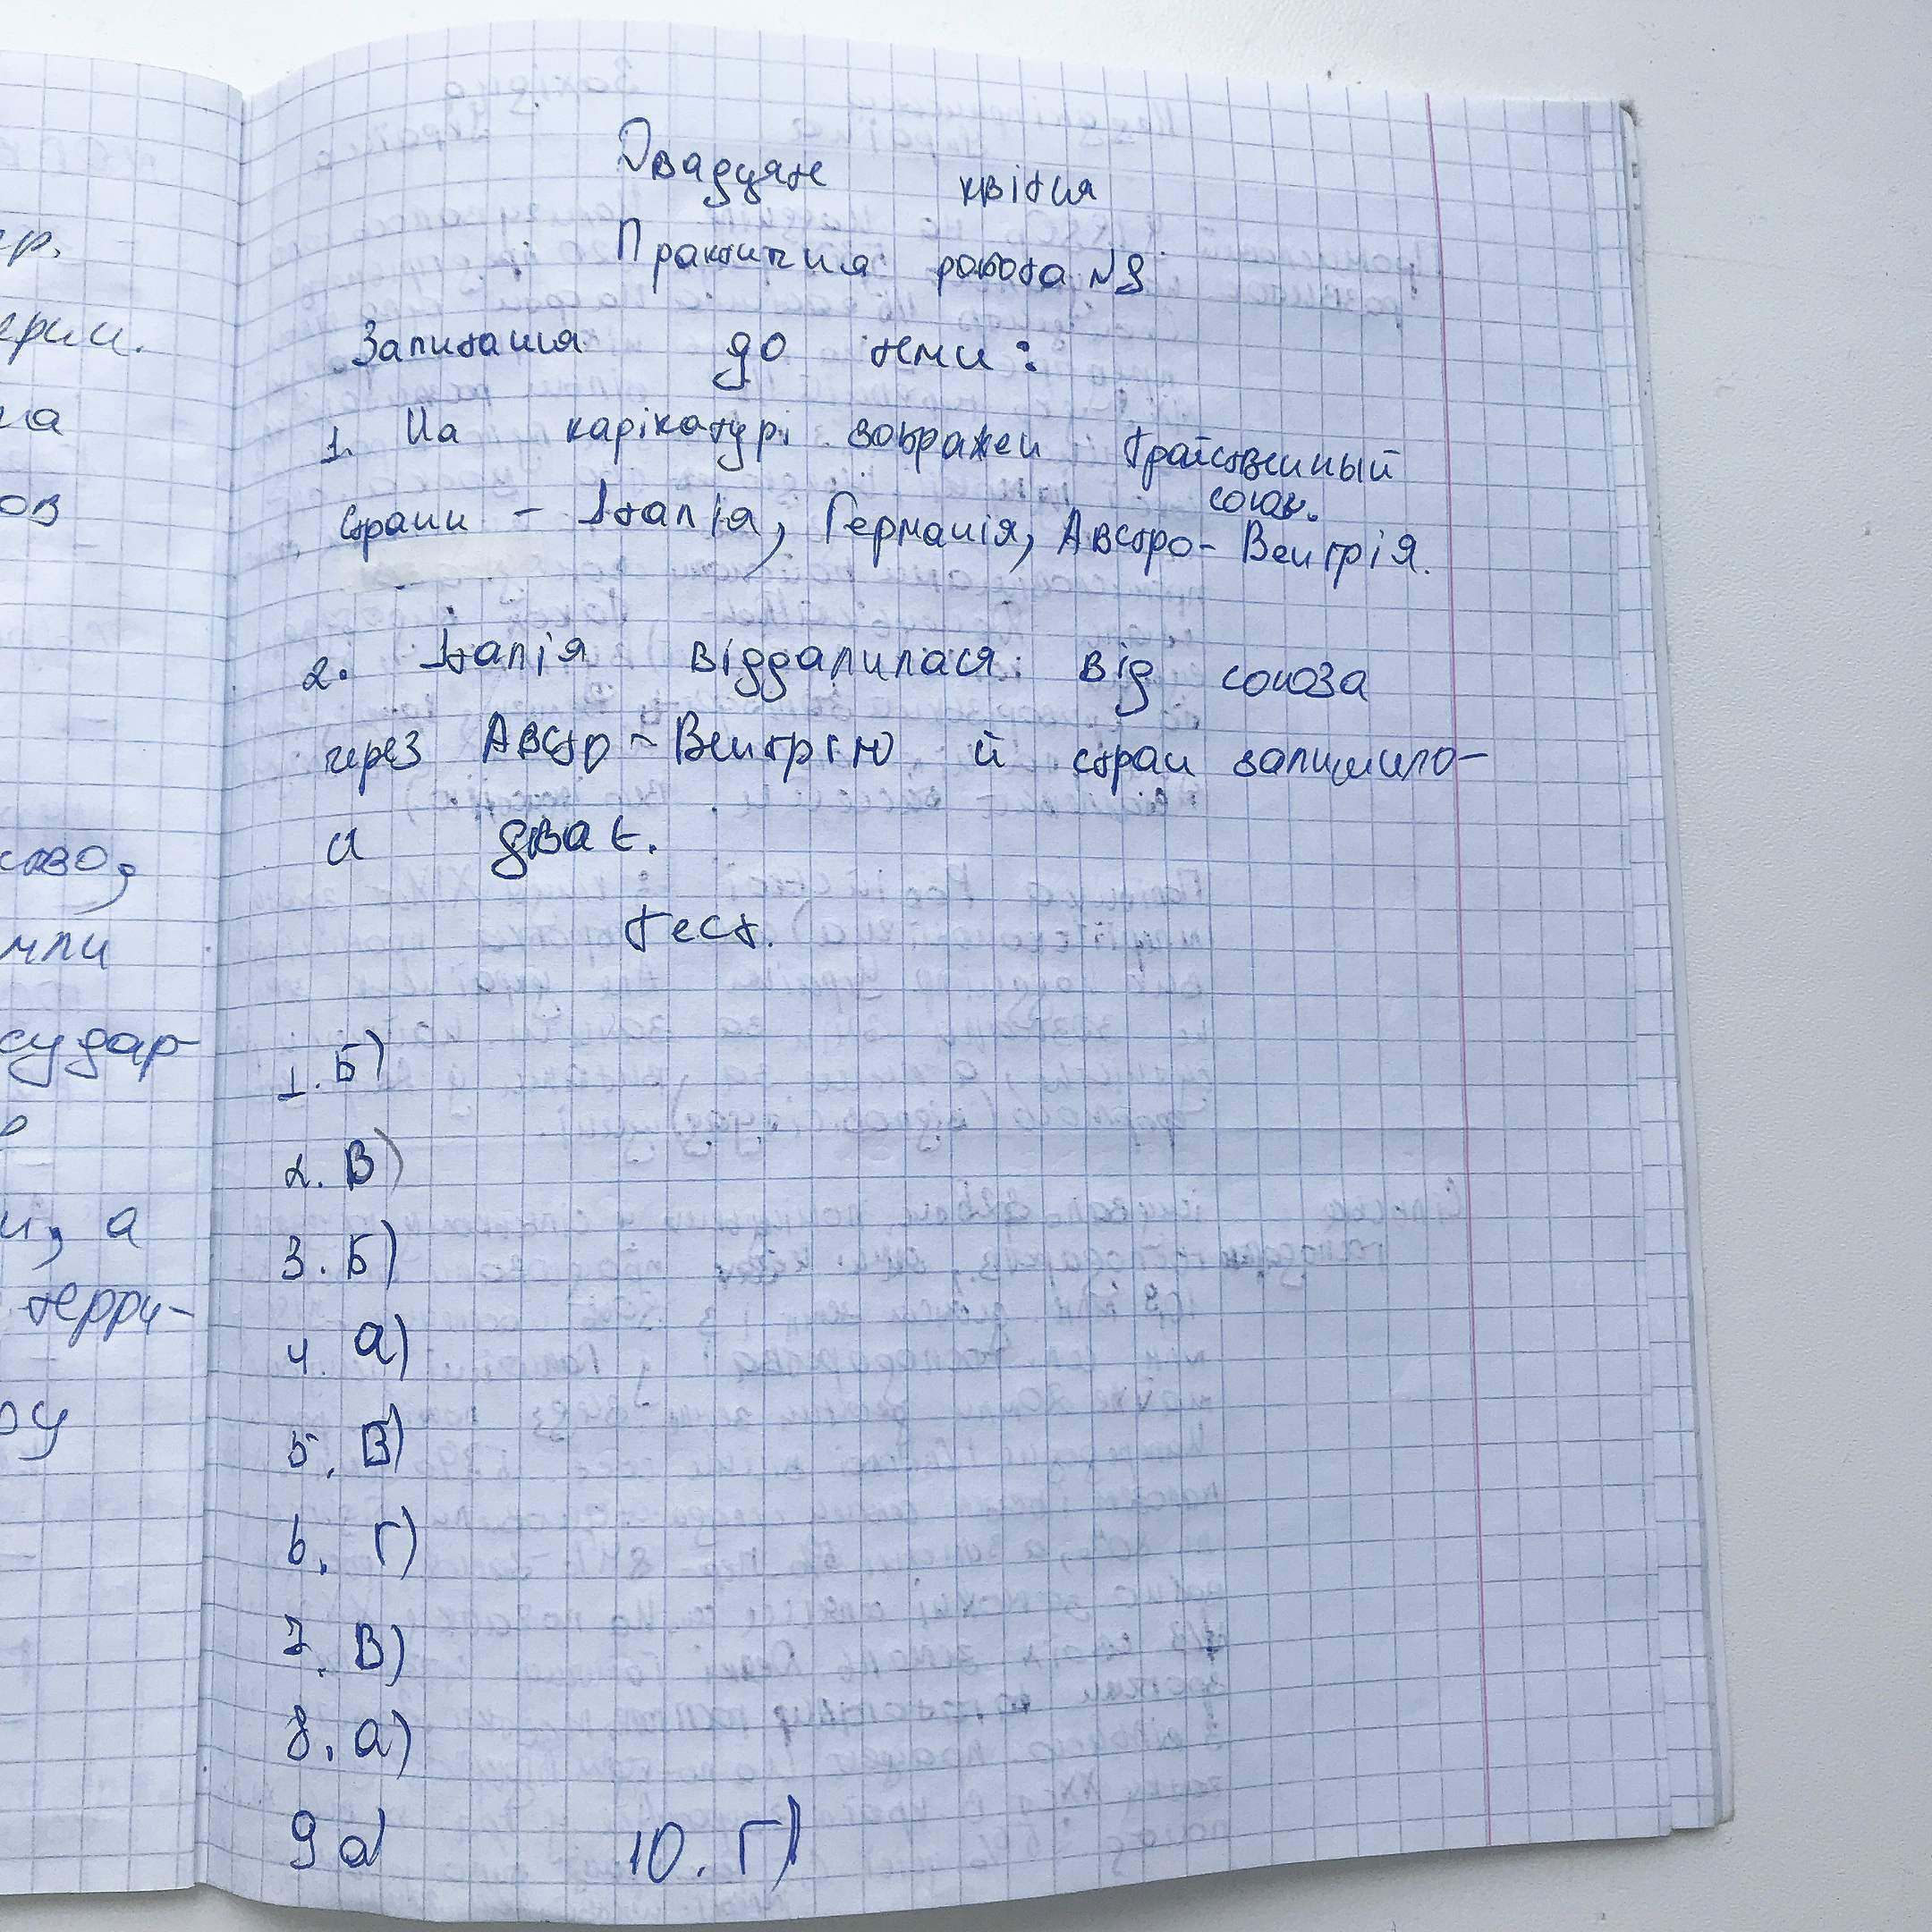 ер.
ерии.
на
ов
ство,
мли
судар-
и, а
терри-
ру
Двадцяте квітня
Практична робота №8
Запитання до теми:
1. На карікатурі зображен тройственный
союз.
страни - Італія, Германія, Австро-Венгрія.
2. Італія віддалилася від союза
через Австро-Венгрію й стран залишило-
а двае.
тест.
1. Б)
2. В)
3. Б)
4. а)
5. В)
6. Г)
7. В)
8. а)
9 а) 10. Г)